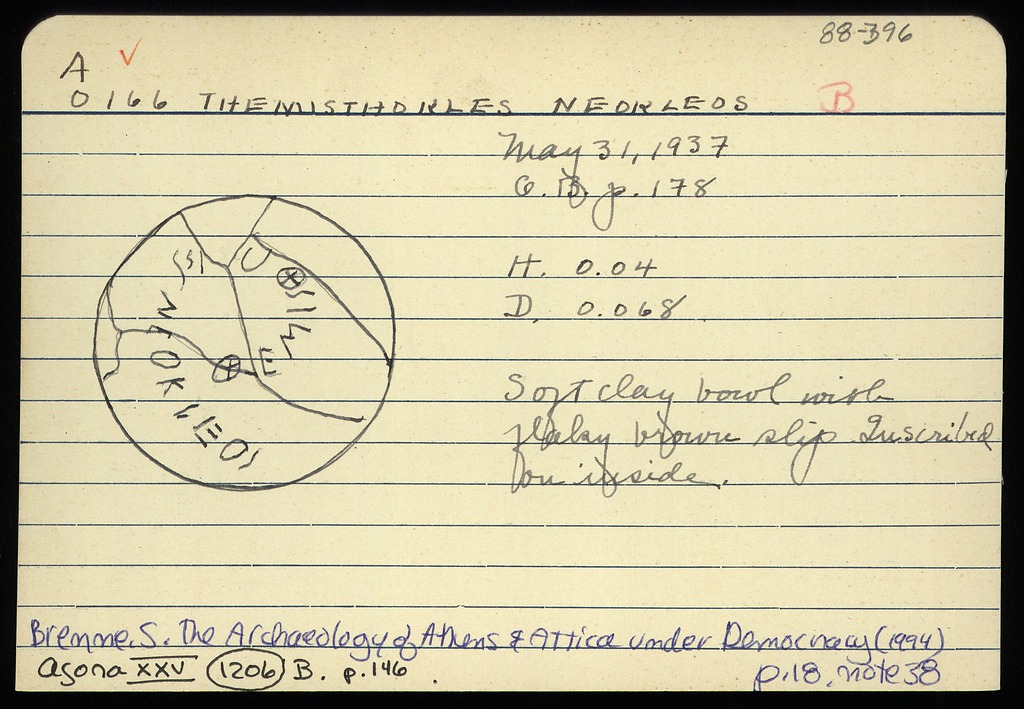 88-396
A ✓
O 166 THEMISTHOKLES NEOKLEOS B
May 31, 1937
p. 178
H. 0.04
D. 0.068
Soft clay bowl with
flaky brown slip. Inscribed
on inside.
NEOKLEOS
Bremme, S. The Archaeology of Athens & Attica under Democracy (1994)
p.18, note 38
Agora XXV 1206 B. p.146.